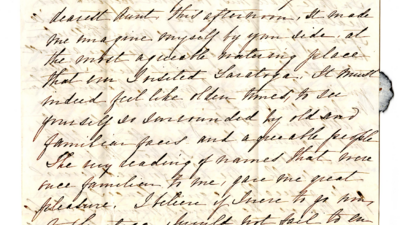 dearest Aunt, this afternoon. It made
me imagine myself by your side, at
the most agreeable watering place
that ever I visited Saratoga. It must
indeed feel like olden times, to see
yourself so surrounded by old and
familiar faces and agreeable people
The my reading of names, that were
once familiar to me, gave me great
pleasure. I believe if I were to go now,
should not fail to